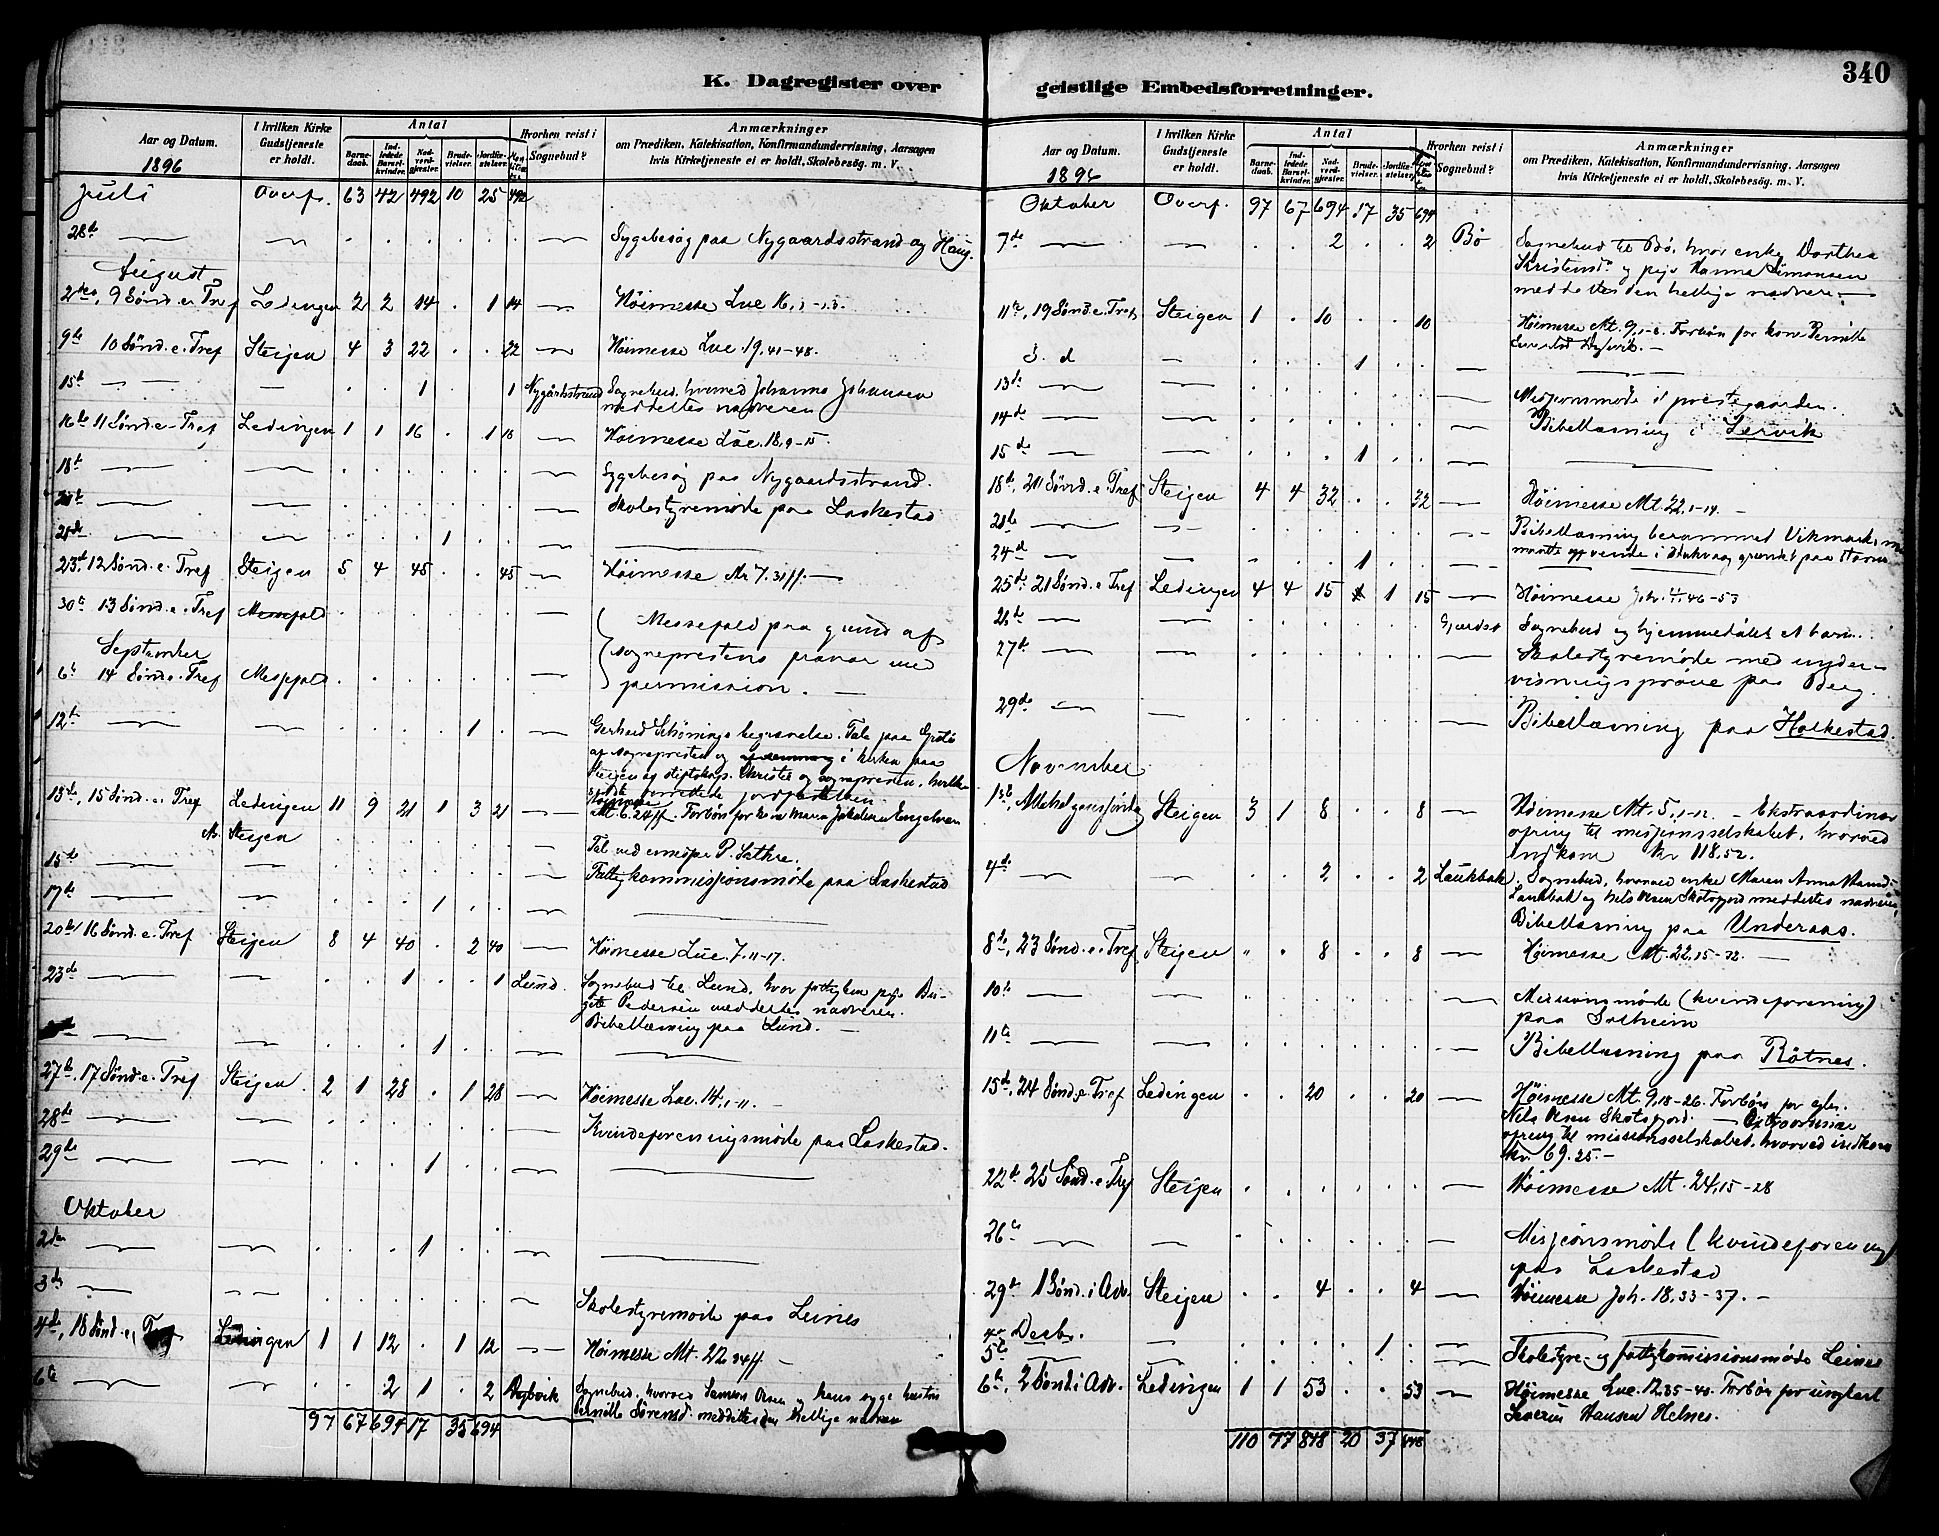 340
K. Dagregister over geistlige Embedsforretninger.
Aar og Datum. 1896
I hvilken Kirke Gudstjeneste er holdt.
Antal
Barnedaab. Indledede Barselkvinder. Nadverdgjester. Brudevielser. Jordfæstelser.
Hvorhen reist i Sognebud?
Anmærkninger
om Prædiken, Katekisation, Konfirmandundervisning, Aarsagen
hvis Kirketjeneste ei er holdt, Skolebesög. m. V.
Juli Overf. 63 42 492 10 25 492
28de Sygebesøg paa Nygaardsstrand og Haug.
August
2den, 9 Sønd. e. Tref Ledingen 2 2 14 . 1 14 Høimesse Luc 16,1-13.
9de 10 Sønd. e. Tref Steigen 4 3 22 . . 22 Høimesse Luc. 19,41-48.
15de . . 1 . . 1 Nygårdsstrand Sognebud, hvorved Johanna Johansen
meddeltes nadveren
16de 11 Sønd. e. Tref Ledingen 1 1 16 . 1 16 Høimesse Luc. 18,9-15.
18de Sygebesøg paa Nygaardsstrand.
Skolestyremøde paa Laskestad
1
23d. 12 Sønd. e. Tref Steigen 5 4 45 . . 45 Høimesse Mr 7,31ff.
30te 13 Sønd. e. Tref Messefald
Messefald paa grund af
sogneprestens fravær med
permission.
September
6te 14 Sønd. e. Tref Messfald
12te 1 Gerhard Schønings begravelse. Tale paa Grøtø
af sognepresten og i kirken paa
Steigen af stiftskap. Christie og sognepresten, hvilken
sidste forrettede jordfæstelsen.
13de, 15 Sønd. e. Tref Ledingen 11 9 21 1 3 21 Høimesse
Mt. 6.24ff. Forbøn for kone Maren Jakobine Engelvær
N. Steigen
Tal ved emisær P. Sæthre.
15de Fattigkommissjonsmøde paa Laskestad
17de 1
20de 16 Sønd. e. Tref Steigen 8 4 40 . 2 40 Høimesse Luc. 7,11-17.
23de . . 1 . . 1 Lund. Sognebud til Lund, hvor fattiglem pige Bir-
gite Pedersen meddeltes nadveren.
Bibellæsning paa Lund.
1
27de, 17 Sønd. e. Tref Steigen 2 1 28 . 1 28 Høimesse Luc. 14,1-11.
28de Kvindeforeningsmøde paa Laskestad.
29de 1
Oktober
2den 1
3de Skolestyremøde paa Leines
4de, 18 Sønd. e. Tref Ledingen 1 1 12 . 1 12 Høimesse Mt. 22,34ff.
6te . . 2 1 . 2 Dypvik Sognebud, hvorved Samson Olsen og hans syge hustru
Pernille Sørensd. meddeltes den hellige nadver
97 67 694 17 35 694
Aar og Datum. 1896
I hvilken Kirke Gudstjeneste er holdt.
Antal
Barnedaab. Indledede Barselkvinder. Nadverdgjester. Brudevielser. Jordfæstelser.
Hvorhen reist i Sognebud?
Anmærkninger
om Prædiken, Katekisation, Konfirmandundervisning, Aarsagen
hvis Kirketjeneste ei er holdt, Skolebesög. m. V.
Oktober Overf. 97 67 694 17 35 694
7de . . 2 . . 2 Bø Sognebud til Bø, hvor enke Dorthea
Kristensd. og pige Hanna Simonsen
meddeltes den hellige nadvere.
11te, 19 Sønd. e. Tref Steigen 1 . 10 . . 10 Høimesse Mt. 9,1-8. Forbøn for kone Pernille
S. d 1
13de Misjonsmøde i prestegaarden.
14de Bibellæsning i Lervik
15de 1
18de, 20 Sønd. e. Tref Steigen 4 4 32 . . 32 Høimesse Mt. 22,1-14.
21de Bibellæsning berammed
24d 1
25de 21 Sønd. e. Tref Ledingen 4 4 15 1 1 15 Høimesse Joh. 4,46-53
Sognebud og hjemmedåbt et barn.
27de Skolestyremøde med under-
visningsprøve paa Berg.
29de Bibellæsning paa Holkestad.
November
1ste, Allehelgenssøndag Steigen 3 1 8 . . 8 Høimesse Mt. 5,1-12. Ekstraordinær
ofring til misjonsselskabet, hvorved
indkom kr 118,52.
4de . . 2 . . 2 Laukbak Sognebud, hvorved enke Maren Anna
Laukbak og Nels Olsen Skotsfjord meddeltes nadveren,
Bibellæsning paa Underaas.
8de, 23 Sønd. e. Tref Steigen " . 8 . . 8 Høimesse Mt. 22,15-22.
10de Missionsmøde (kvindeforening)
paa Solheim
11te Bibellæsning paa Røtnes.
15de, 24 Sønd. e. Tref Ledingen . . 20 . . 20 Høimesse Mt. 9,18-26. Forbøn for
Nils Olsen Skotsfjord.
ofring til missionsselskabet, hvorved indkom
kr. 69.25.
22de 25 Sønd. e. Tref Steigen Høimesse Mt. 24,15-28
26te Misjonsmøde (kvindeforening)
paa Laskestad
29de 1 Sønd. i Adv. Steigen . . 4 . . 4 Høimesse Joh. 18,33-37.
4de Decbr. 1
5te Skolestyre- og fattigkommissionsmøde Leines
6te, 2 Sønd i Adv. Ledingen 1 1 53 . . 53 Høimesse Luc. 12,35-40. Forbøn for ungkarl
Severin Hansen Helnes.
110 77 848 20 37 848